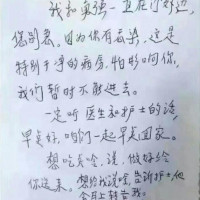 我和真强一直在门外边,
您别急。因为你有云头,这是
特别干净的病房,怕影响你,
我们暂时不能进去。
一定听医生和护士的话,
早点好,咱们一起早点回家。
想吃点啥,说,做好给
你送来。想给我说啥,告诉护士,他
会马上转告我。